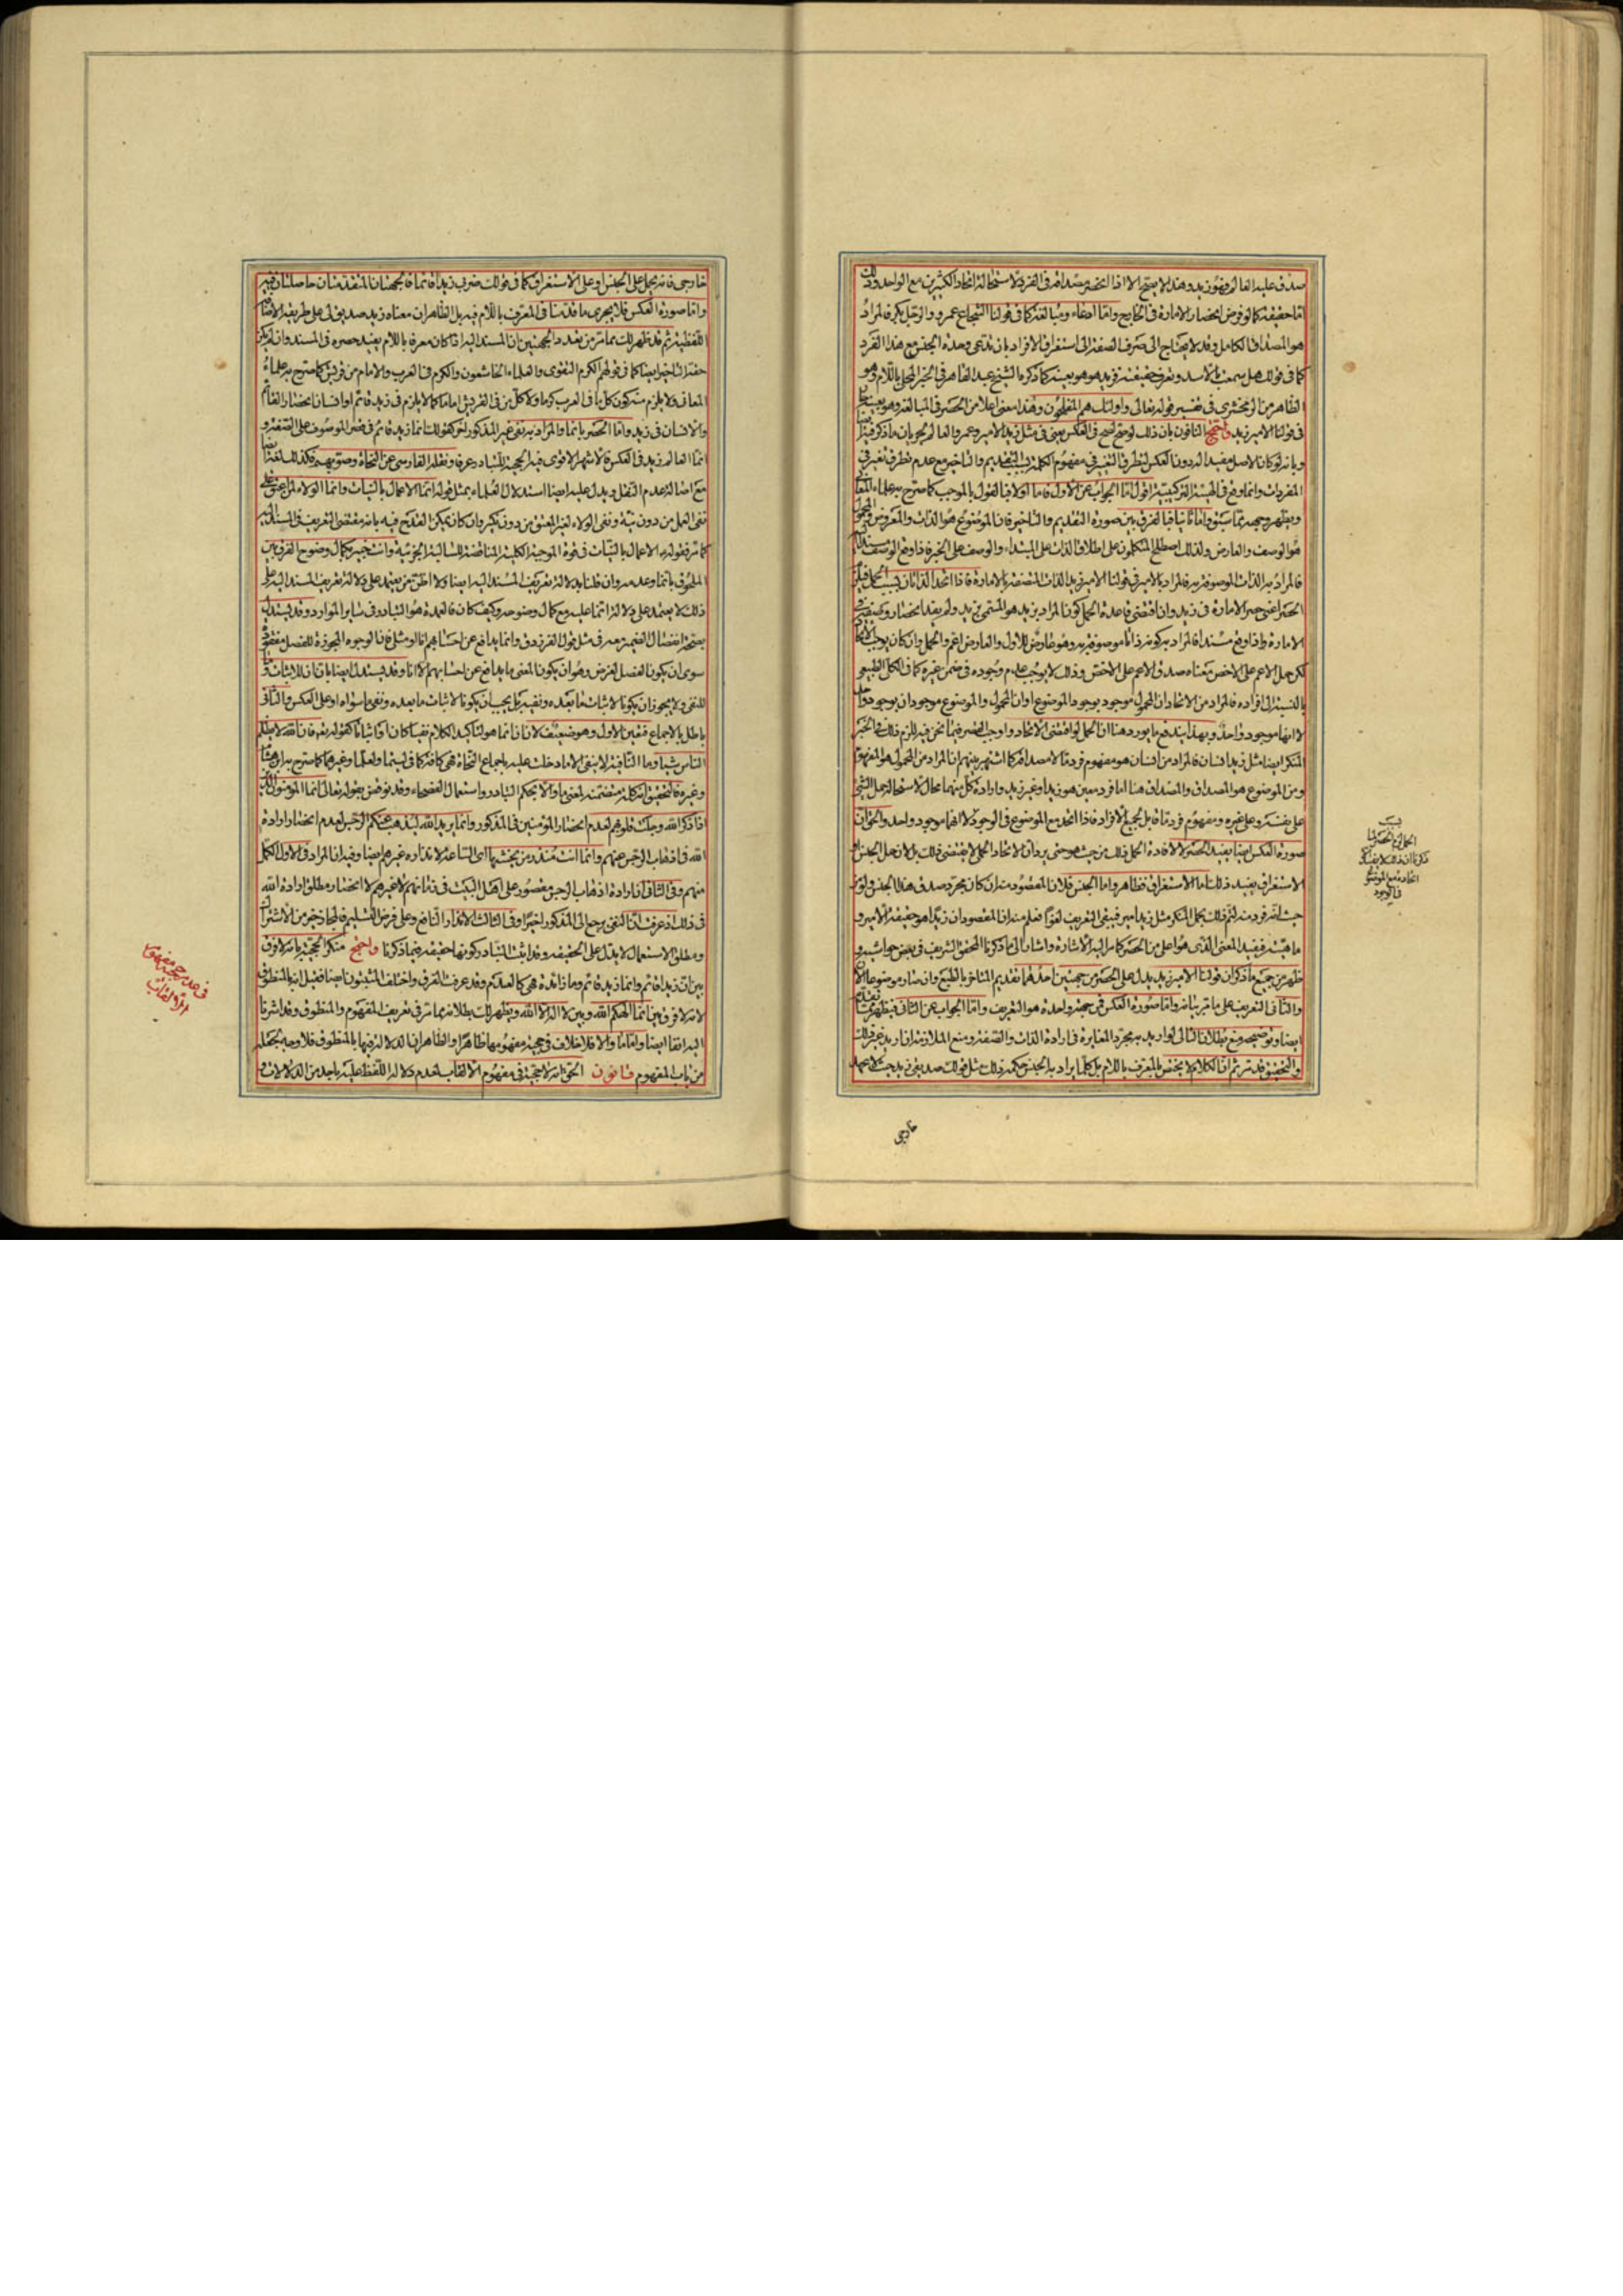 صدق عليه العالم فهو زيد وهذا لا يصح الا اذا انحصر مصداقه فى الفرد لاستحالة اتحاد الكثيرين مع الواحد وذلك
اما حقيقة كما لو فرض انحصار الامارة فى الخارج واما ادعاء ومبالغة كما فى قولنا الشجاع عمرو والرجل بكر فالمراد
هو المصداق الكامل وقد لا يحتاج الى صرف الصفة الى استغراق الافراد بان يدعى وحدة الجنس مع هذا الفرد
كما فى قولك هل سمعت بالاسد وتعرف حقيقته فزيد هو هو بعينه كما ذكره الشيخ عبد القاهر فى الخبر المحلى باللام وهو
الظاهر من الزمخشرى فى تفسير قوله تعالى واولئك هم المفلحون وهذا معنى اعلا من الحصر فى المبالغة وهو بعينه
فى قولنا الامير زيد واحتج النافون بان ذلك لو صح لصح فى العكس يعنى فى مثل زيد الامير وعمرو العالم لجريان ما ذكر فيه
وبانه لو كان الاصل مفيدا له دون العكس لتطرق التغير فى مفهوم الكلمة بسبب التقديم والتاخير مع عدم تطرق تغير فى
المفردات وانما وقع فى الهيئة التركيبية اقول اما الجواب عن الاول فاما اولا فبا لقول بالموجب كما صرح به علماء المعانى
ويظهر وجهه مما سبق واما ثانيا فبا لفرق بين صورة التقديم والتاخير فان الموضوع هو الذات والمعروض والمحمول
هو الوصف والعارض ولذلك اصطلح المتكلمون على اطلاق الذات على المبتداء والوصف على الخبر فاذا وقع الوصف مسندا اليه
فالمراد به الذات الموصوفة به فالمراد بالامير فى قولنا الامير زيد الذات المتصفة بالامارة فاذا اتحد الذاتان بسبب الحمل فيلزم
الحصر اعنى حصر الامارة فى زيد وان اقتضى قاعدة الحمل كون المراد بزيد هو المسمى بزيد ولم يفد انحصار وصف
الامارة واذا وقع مسندا فالمراد به كونه ذاتا موصوفة به وهو عارض للاول والعارض اعم والحمل وان كان يوجب الاتحاد
لكن حمل الاعم على الاخص معناه صدق الاعم على الاخص وذلك لا يوجب عدم وجوده فى ضمن غيره كما فى الكلى الطبيعى
بالنسبة الى افراده فالمراد من الاتحاد ان المحمول موجود بوجود الموضوع او ان المحمول والموضوع موجودان بوجود واحد
لا انهما موجود واحد وبهذا يندفع ما يورد هنا ان الحمل لو اقتضى الاتحاد واوجب الحصر فيما نحن فيه للزم ذلك فى الخبر
المنكر ايضا مثل زيد انسان فالمراد من انسان هو مفهوم فرد ما لا مصداقه كما اشتهر بينهم ان المراد من المحمول هو المفهوم
ومن الموضوع هو المصداق والمصداق هنا اما فرد معين هو زيد او غير زيد وارادة كل منهما محال لاستحالة حمل الشئ
على نفسه وعلى غيره ومفهوم فرد ما قابل لجميع الافراد فاذا اتحد مع الموضوع فى الوجود لا انهما موجود واحد والحق ان
صورة العكس ايضا يفيد الحصر لا لافادة الحمل ذلك من حيث هو حتى يرد ان الاتحاد الحملى لا يقتضى ذلك بل لان حمل الجنس او
الاستغراق يفيد ذلك اما الاستغراق فظاهر واما الجنس فلان المقصود منه ان كان مجرد صدق هذا الجنس ولو من
حيث انه فرد منه لزم ذلك بحمل المنكر مثل زيد امير فيبقى التعريف لغوا فعلم منه ان المقصود ان زيدا هو حقيقة الامير و
ماهيته فيفيد المعنى الذى هو اعلى من الحصر كما مر اليه الاشارة واشار الى ما ذكرنا المحقق الشريف فى بعض حواشيه و
ظهر من جميع ما ذكر ان قولنا الامير زيد يدل على الحصر من جهتين احدهما تقديم المتاخر بالطبع وان صار موضوعا الان
والثانى التعريف على ما مر بيانه واما صورة العكس فمن جهة واحدة هو التعريف واما الجواب عن الثانى فيظهر مما تقدم
ايضا وتوضيحه منع بطلان التالى لو اريد به مجرد المغايرة فى ارادة الذات والصفة ومنع الملازمة ان اريد غير ذلك
والتحقيق قد مر ثم ان الكلام لا يختص بالمعرف باللام بل كلما يراد به الجنس حكمه ذلك مثل قولك صديقى زيد حيث لا عهد
خارجى
الحمل الحصر لما
ذكرنا ان ذلك لا يفيد
اتحاده مع الموضوع
فى الوجود
خارجى فانه يحمل على الجنس او على الاستغراق كما فى قولك ضرب زيدا قائما فالجهتان المتقدمتان حاصلتان فيه
واما صورة العكس فلا يجرى ما قدمنا فى المعرف باللام فيه بل الظاهر ان معناه زيد صديق لى على طريقة الاضافة
اللفظية ثم قد ظهر لك مما مر من تعدد الجهتين ان المسند اليه اذا كان معرفا باللام يفيد حصره فى المسند وان لم يكن
حقه التاخير ايضا كما فى قولهم الكرم التقوى والعلماء الخاشعون والكرم فى العرب والامام من قريش كما صرح به علماء
المعانى ولا يلزم منه كون كل ما فى العرب كرما ولا كل من فى القريش اماما كما لا يلزم فى زيد قائم او انسان انحصار القائم
والانسان فى زيد واما الحصر بانما والمراد به نفى غير المذكور اخيرا كقولك انما زيد قائم فى قصر الموصوف على الصفة و
انما القائم زيد فى العكس فالاشهر الاقوى فيه الحجية للتبادر عرفا ونقله الفارسى عن النحاة وصوبهم فكذلك لغة ايضا
مع اصالة عدم النقل ويدل عليه ايضا استدلال العلماء بمثل قوله انما الاعمال بالنيات وانما الولاء لمن اعتق على
نفى العمل من دون نية ونفى الولاء لغير المعتق من دون نكير وان كان يمكن القدح فيه بانه مقتضى التعريف فى المسند اليه
كما مر فقوله الاعمال بالنيات فى قوة الموجبة الكلية المناقضة للسالبة الجزئية وانت خبير بكمال وضوح الفرق بين
الملحوق بانما وعدمه وان قلنا بدلالة تعريف المسند اليه ايضا ولا اظن من يعتمد على دلالة تعريف المسند اليه على
ذلك لا يعتمد على دلالة انما عليه مع كمال وضوحه وكيف كان فالعمدة هو التبادر فى ساير الموارد وقد يستدل
بصحة انفصال الضمير معه فى مثل قول الفرزدق وانما يدافع عن احسابهم انا او مثلى فان الوجوه المجوزة للفصل مفقود
سوى ان يكون الفصل لغرض وهو ان يكون المعنى ما يدافع عن احسابهم الا انا وقد يستدل ايضا بان ان للاثبات وما
للنفى ولا يجوز ان يكون لاثبات ما بعده ونفيه بل يجب ان يكون لاثبات ما بعده ونفى ما سواه او على العكس والثانى
باطل بالاجماع فتعين الاول وهو ضعيف لان ان انما هو لتاكيد الكلام نفيا كان او اثباتا كقوله تعالى ان الله لا يظلم
الناس شيئا وما النافية لا ينفى الا ما دخلت عليه باجماع النحاة فهى كافة كما فى ليتما ولعلما وغيرهما كما صرح به ابن هشام
وغيره فالتحقيق انه كلمة متضمنة لمعنى ما والا بحكم التبادر واستعمال الفصحاء وقد نوقض بقوله تعالى انما المؤمنون الذين
اذا ذكر الله وجلت قلوبهم لعدم انحصار المؤمنين فى المذكور وانما يريد الله ليذهب عنكم الرجس لعدم انحصار ارادة
الله فى اذهاب الرجس عنهم وانما انت منذر من يخشيها اى الساعة لانذاره غيرهم ايضا وفيه ان المراد فى الاول الكمل
منهم وفى الثانى ان ارادة اذهاب الرجس مقصور على اهل البيت فى زمانهم لا غيرهم لا انحصار مطلق ارادة الله
فى ذلك اذ عرفت ان النفى يرجع الى المذكور اخيرا وفى الثالث الانذار النافع وعلى فرض التسليم فالمجاز خير من الاشتراك
ومطلق الاستعمال لا يدل على الحقيقة وقد اثبت التبادر كونها حقيقة فيما ذكرنا واحتج منكر الحجية بانه لا فرق
بين ان زيدا قائم وانما زيد قائم وما زائدة فهى كالعدم وقد عرفت الفرق واختلف المثبتون ايضا فقيل انه بالمنطوق
لانه لا فرق بين انما الهكم الله وبين لا اله الا الله ويظهر لك بطلانه مما مر فى تعريف المفهوم والمنطوق وقد اشرنا
اليه انفا ايضا واما ما والا فلا خلاف فى حجية مفهومهما ظاهرا والظاهر ان الدلالة فيها بالمنطوق فلا وجه لجعله
من باب المفهوم قانون الحق انه لا حجية فى مفهوم الالقاب لعدم دلالة اللفظ عليه باحد من الدلالات و
فى عدم حجية مفهوم
الالقاب